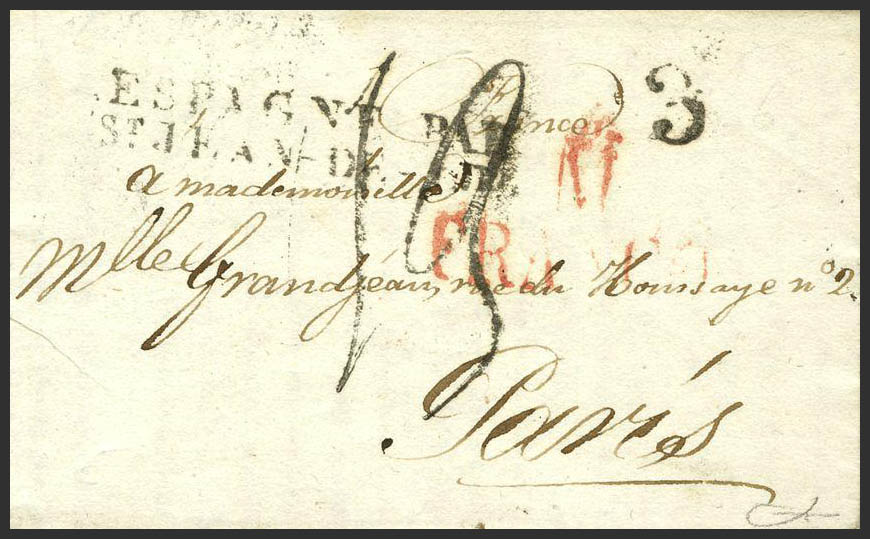 ESPAGNE PAR
St. JEAN-DE
France
3
a mademoiselle
FRANCO
Mlle Grandjéan, rue du Houssaye nº 2.
Paris